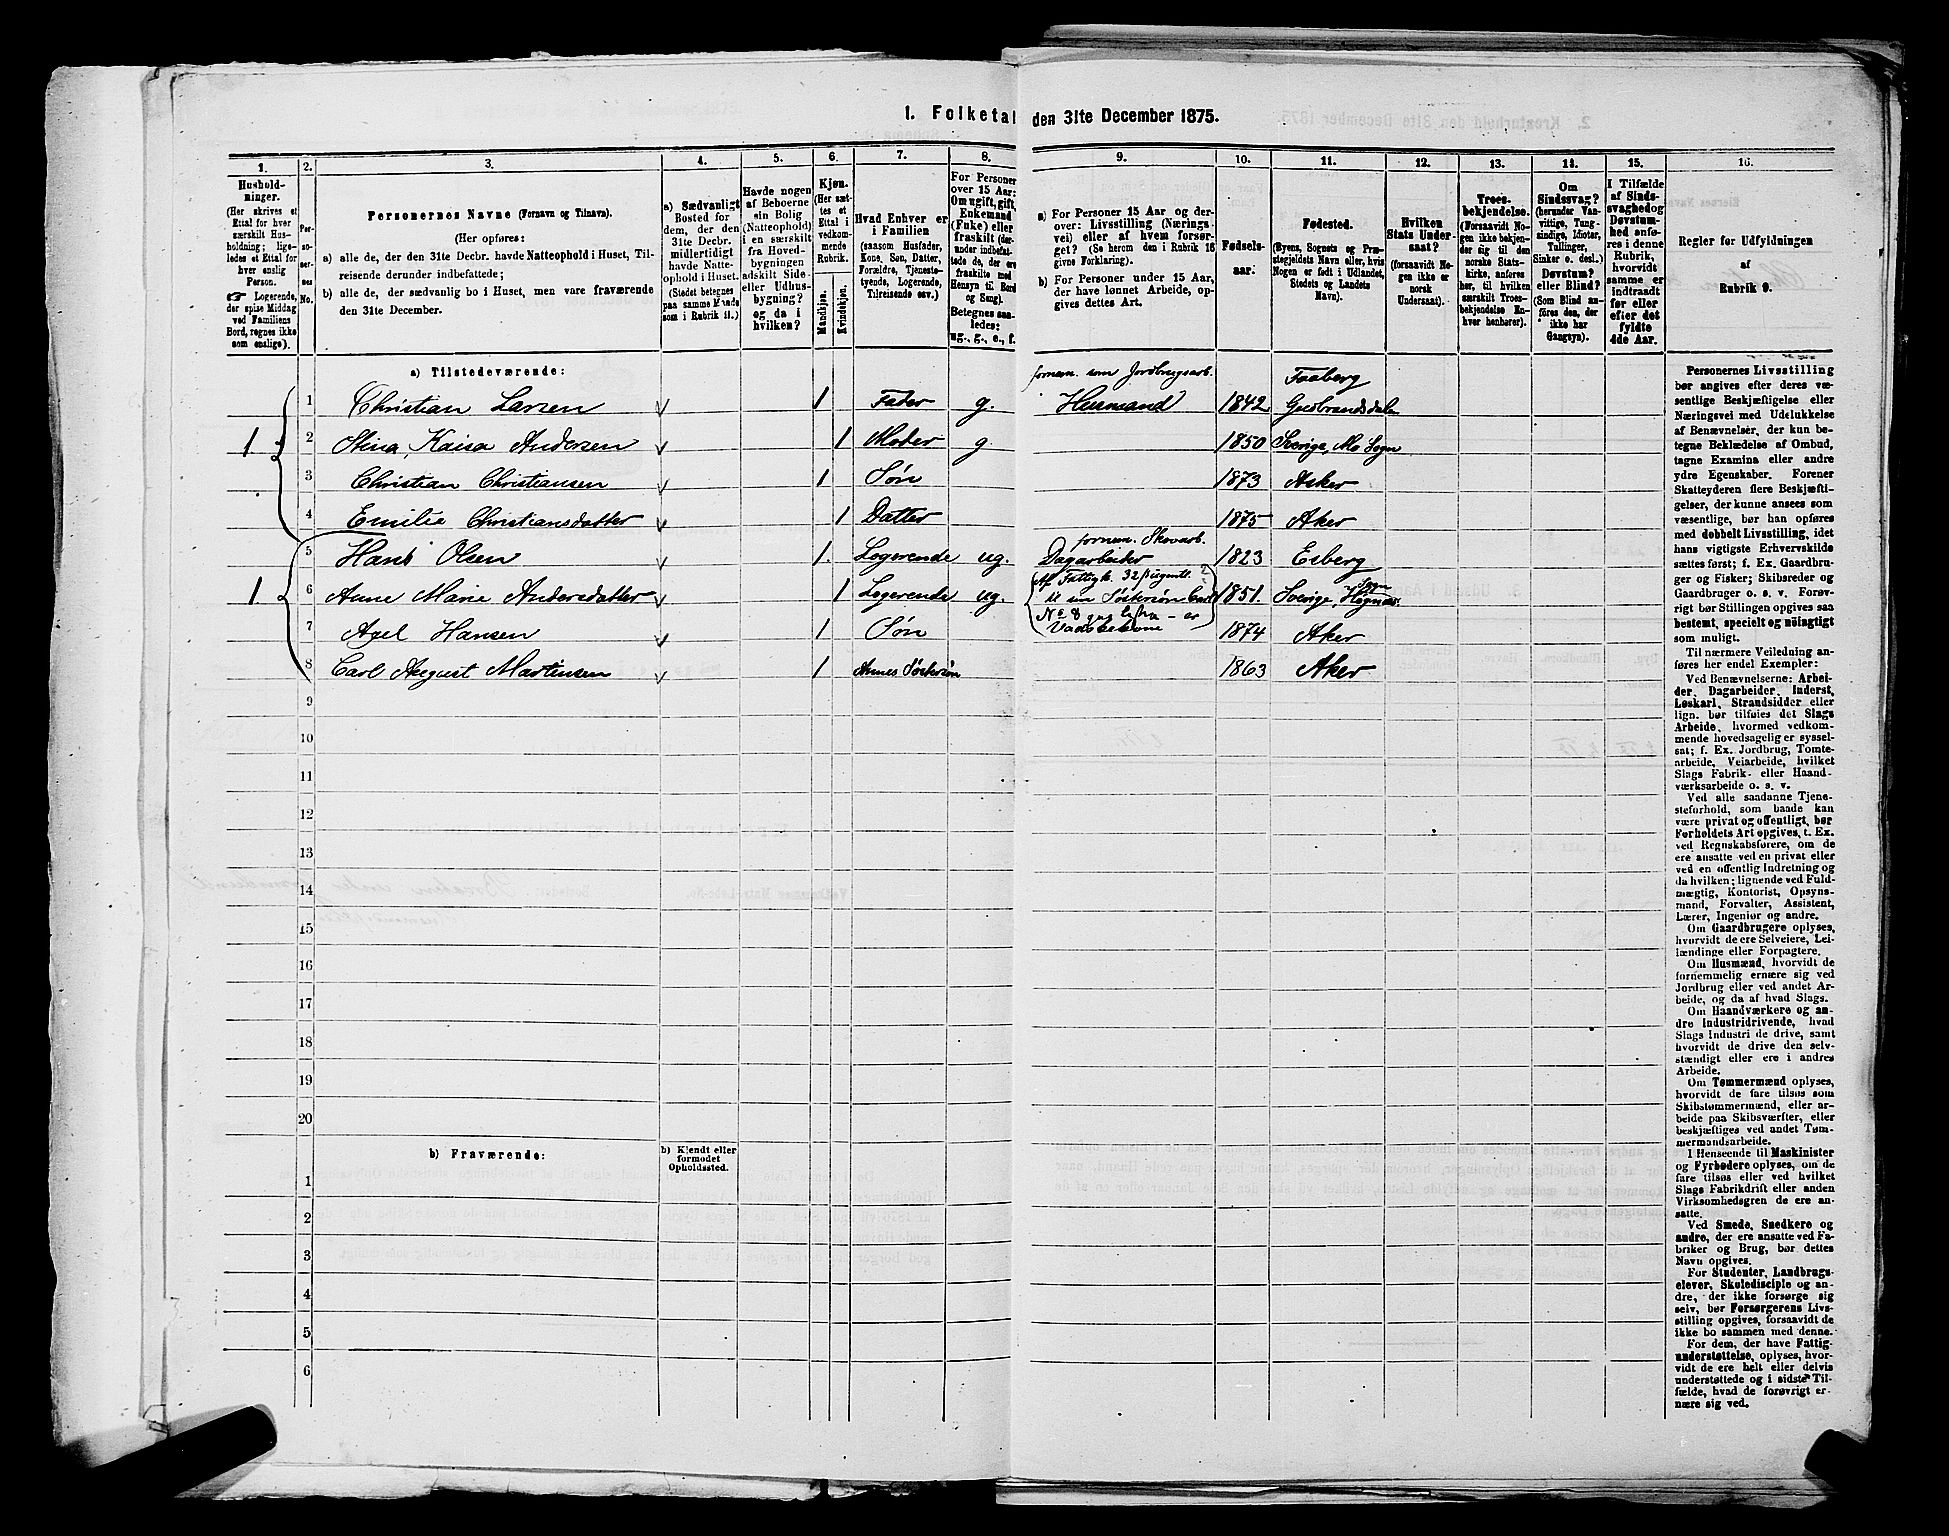 1. Folketal den 31te December 1875.
1.
2.
3.
4.
5.
6.
7.
8.
9.
10.
11.
12.
13.
14.
15.
16.
Hushold-
ninger.
(Her skrives et
Ettal for hver
særskilt Hus-
holdning; lige-
ledes et Ettal for
hver enslig
Person.
☛ Logerende,
der spise Middag
ved Familiens
Bord, regnes ikke
som enslige).
Per-
so-
ner-
nes
No.
Personernes Navne (Fornavn og Tilnavn).
(Her opføres:
a) alle de, der den 31te Decbr. havde Natteophold i Huset, Til-
reisende derunder indbefattede;
b) alle de, der sædvanlig bo i Huset, men vare fraværende
den 31te December.
a) Sædvanligt
Bosted for
dem, der den
31te Decbr.
midlertidigt
havde Natte-
ophold i Huset.
(Stedet betegnes
paa samme Maade
som i Rubrik 11.)
Havde nogen
af Beboerne
sin Bolig
(Natteophold)
i en særskilt
fra Hoved-
bygningen
adskilt Side-
eller Udhus-
bygning?
og da i
hvilken?
Kjøn.
(Her sæt-
tes et
Ettal i
vedkom-
mende
Rubrik.
Mandkjøn.
Kvindekjøn.
Hvad Enhver er
i Familien
(saasom Husfader,
Kone, Søn, Datter,
Forældre, Tjeneste-
tyende, Logerende,
Tilreisende osv.)
For Personer
over 15 Aar:
Om ugift, gift,
Enkemand
(Enke) eller
fraskilt
Betegnes saa-
ledes:
ug., g., e., f.
a) For Personer 15 Aar og der-
over: Livsstilling (Nærings-
vei) eller af hvem forsør-
get? (Se herom den i Rubrik 16
givne Forklaring).
b) For Personer under 15 Aar,
der have lønnet Arbeide, op-
gives dettes Art.
Fødsels-
aar.
Fødested.
(Byens, Sognets og Præ-
stegjeldets Navn eller, hvis
Nogen er født i Udlandet,
Stedets og Landets
Navn).
Hvilken
Stats Under-
saat?
(forsaavidt No-
gen ikke er
norsk
Undersaat).
Troes-
bekjendelse.
(Forsaavidt No-
gen ikke bekjen-
der sig til den
norske Stats-
kirke, anføres
her, til hvilken
særskilt Troes-
bekjendelse En-
hver henhører).
Om
Sindssvag?
(herunder Van-
vittige, Tung-
sindige, Idioter,
Tullinger,
Sinker o. desl.)
Døvstum?
eller Blind?
(Som Blind an-
føres den, der
ikke har
Gangsyn).
I Tilfælde
af Sinds-
svaghed og
Døvstum-
hed anfø-
res i denne
Rubrik,
hvorvidt
samme er
indtraadt
før eller
efter det
fyldte
4de Aar.
Regler for Udfyldningen
af
Rubrik 9.
a) Tilstedeværende:
fornem. som Jordbrugsarb.
1 Christian Larsen 1 Fader g. Husmand 1842 Faaberg Gudbrandsdalen
1 2 Stina Kaisa Andersen 1 Moder g 1850 Sverige, Mo Sogn
3 Christian Christiansen 1 Søn 1873 Asker
4 Emilie Christiansdatter 1 Datter 1875 Aker
fornem. Skovarb.
5 Hans Olsen 1. Logerende ug. Dagarbeider 1823 Esberg
Af Fattigk.
1 6 Anne Marie Andersdatter 1 Logerende ug. Søstersøn 1851. Sverige, Sogn
7 Axel Hansen 1 Søn Vadskekone 1874 Aker
8 Carl August Martinsen 1 Annes Søstersøn 1863 Aker
9
10
11
12
13
14
15
16
17
18
19
20
b) Fraværende:
b) Kjendt eller
formodet
Opholdssted.
1
2
3
4
5
6
Personernes Livsstilling
bør angives efter deres væ-
sentlige Beskjæftigelse eller
Næringsvei med Udelukkelse
af Benævnelser, der kun be-
tegne Beklædelse af Ombud,
tagne Examina eller andre
ydre Egenskaber. Forener
Skatteyderen flere Beskjæfti-
gelser, der kunne ansees som
væsentlige, bør han opføres
med dobbelt Livsstilling, idet
hans vigtigste Erhvervskilde
sættes først; f. Ex. Gaardbru-
ger og Fisker; Skibsreder og
Gaardbruger o. s. v. Forøv-
rigt bør Stillingen opgives saa
bestemt, specielt og nøiagtigt
som muligt.
Til nærmere Veiledning an-
føres her endel Exempler:
Ved Benævnelserne: Arbei-
der, Dagarbeider, Inderst,
Løskarl, Strandsidder eller
lign. bør tilføies det Slags
Arbeide, hvormed vedkom-
mende hovedsagelig er syssel-
sat; f. Ex. Jordbrug, Tomte-
arbeide, Veiarbeide, hvilket
Slags Fabrik- eller Haand-
værksarbeide o. s. v.
Ved alle saadanne Tjene-
steforhold, som baade kan
være privat og offentligt, bør
Forholdets Art opgives, t. Ex.
ved Regnskabsførere, om de
ere ansatte ved en privat eller
ved en offentlig Indretning og
da hvilken; lignende ved Fuld-
mægtig, Kontorist, Opsyns-
mand, Forvalter, Assistent,
Lærer, Ingeniør og andre.
Om Gaardbrugere oplyses,
hvorvidt de ere Selveiere, Lei-
lændinge eller Forpagtere.
Om Husmænd, hvorvidt de
fornemmelig ernære sig ved
Jordbrug eller ved andet Ar-
beide, og da af hvad Slags.
Om Haandværkere og an-
dre Industridrivende, hvad
Slags Industri de drive, samt
hvorvidt de drive den selv-
stændigt eller ere i andres
Arbeide.
Om Tømmermænd oplyses,
hvorvidt de fare tilsøs som
Skibstømmermænd, eller ar-
beide paa Skibsværfter, eller
beskjæftiges ved andet Tøm-
mermandsarbeide.
I Henseende til Maskinister
og Fyrbødere oplyses, om de
fare tilsøs eller ved hvilket
Slags Fabrikdrift eller anden
Virksomhedsgren de ere an-
satte.
Ved Smede, Snedkere og
andre, der ere ansatte ved Fa-
briker og Brug, bør dettes
Navn opgives.
For Studenter, Landbrugs-
elever, Skoledisciple og an-
dre, der ikke forsørge sig
selv, bør Forsørgerens Livs-
stilling opgives, forsaavidt de
ikke bo sammen med denne.
For dem, der have Fattig-
understøttelse, oplyses, hvor-
vidt de ere helt eller delvis
understøttede og i sidste Til-
fælde, hvad de forøvrigt er-
nære sig ved.